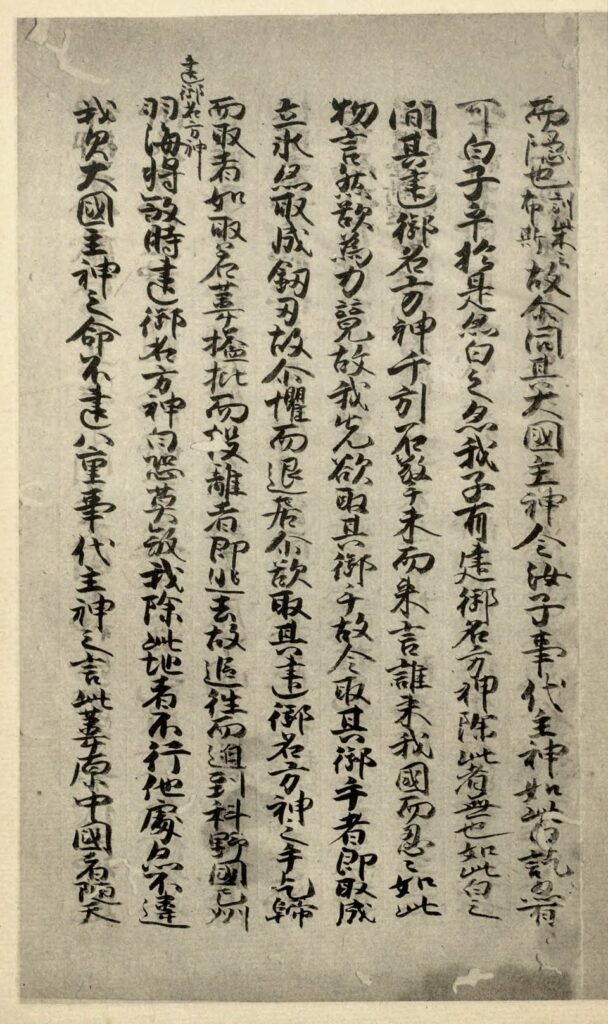 而隠也訓柴云布斯故尒問其大國主神今汝子事代主神如此白訖亦有
可白子乎於是亦白之亦我子有建御名方神除此者無也如此白之
間其建御名方神千引石擎手末而来言誰来我國而忍々如此
物言然欲為力競故我先欲取其御手故令取其御手者即取成
立氷亦取成釼刃故尒懼而退居尒欲取其建御名方神之手乞歸
而取者如取若葦搤批而投離者即逃去故追往而迫到科野國之州
建御名方神
羽海将敬時建御名方神白恐莫敬我除此地者不行他處亦不違
我父大國主神之命不違八重事代主神之言此葦原中國者随天